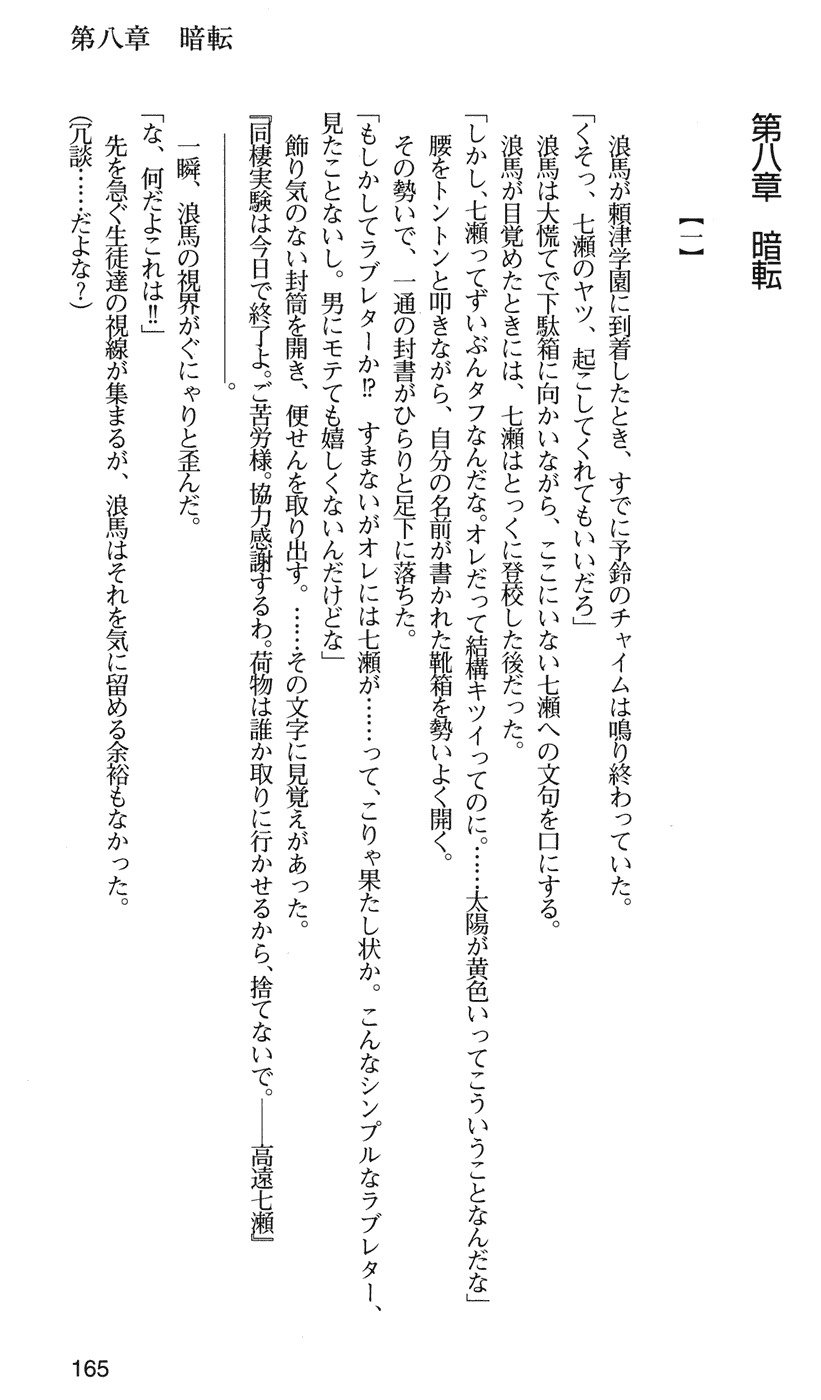 第八章　暗転
第八章　暗転
【一】
浪馬が頼津学園に到着したとき、すでに予鈴のチャイムは鳴り終わっていた。
「くそっ、七瀬のヤツ、起こしてくれてもいいだろ」
浪馬は大慌てで下駄箱に向かいながら、ここにいない七瀬への文句を口にする。
浪馬が目覚めたときには、七瀬はとっくに登校した後だった。
「しかし、七瀬ってずいぶんタフなんだな。オレだって結構キツイってのに。……太陽が黄色いってこういうことなんだな」
腰をトントンと叩きながら、自分の名前が書かれた靴箱を勢いよく開く。
その勢いで、一通の封書がひらりと足下に落ちた。
「もしかしてラブレターか⁉　すまないがオレには七瀬が……って、こりゃ果たし状か。こんなシンプルなラブレター、
見たことないし。男にモテても嬉しくないんだけどな」
飾り気のない封筒を開き、便せんを取り出す。……その文字に見覚えがあった。
『同棲実験は今日で終了よ。ご苦労様。協力感謝するわ。荷物は誰か取りに行かせるから、捨てないで。――高遠七瀬』
――――――――――。
一瞬、浪馬の視界がぐにゃりと歪んだ。
「な、何だよこれは‼」
先を急ぐ生徒達の視線が集まるが、浪馬はそれを気に留める余裕もなかった。
（冗談……だよな？）
165